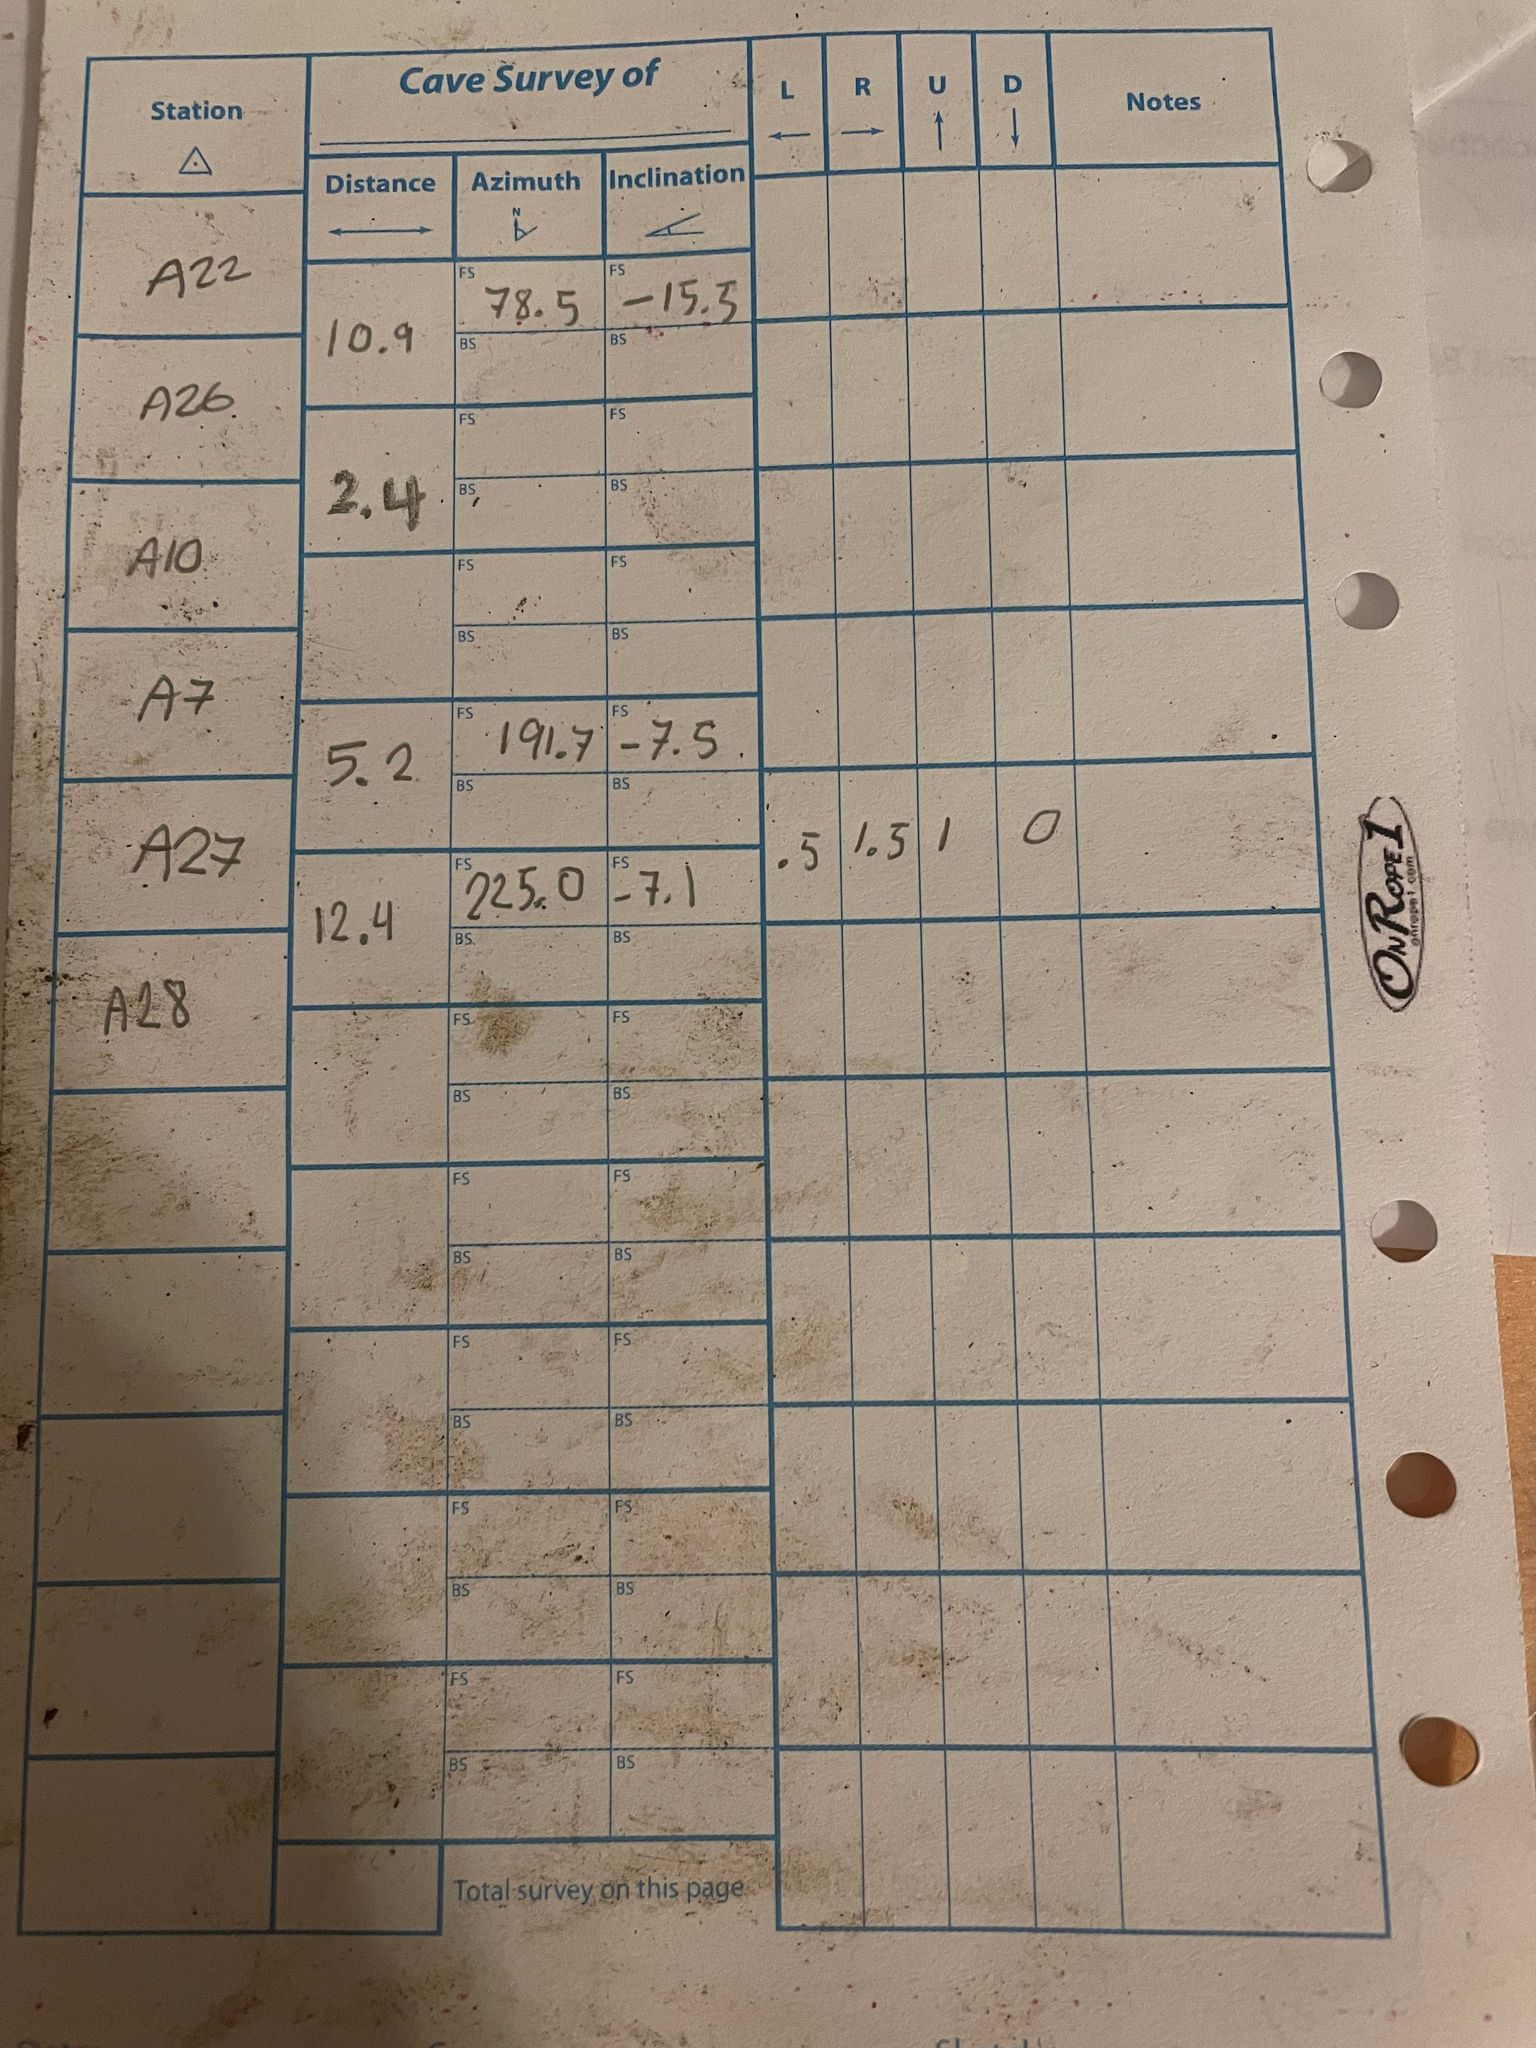 Station
Cave Survey of
L
R
U
D
Notes
Distance
Azimuth
Inclination
N
A22
FS
78.5
FS
-15.5
10.9
BS
BS
A26
FS
FS
2.4
BS
BS
A10
FS
FS
BS
BS
A7
FS
191.7
FS
-7.5
5.2
BS
BS
A27
.5
1.5
1
0
FS
225.0
FS
-7.1
12.4
BS
BS
A28
FS
FS
BS
BS
FS
FS
BS
BS
FS
FS
BS
BS
FS
FS
BS
BS
FS
FS
BS
BS
Total survey on this page
ONROPE1
onrope1.com